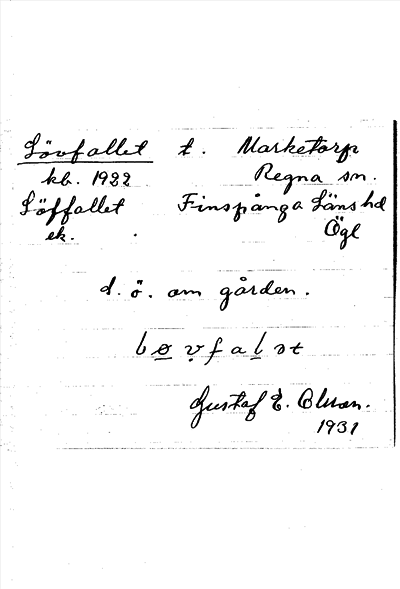 Lövfallet t. Marketorp
kb. 1922 Regna sn.
Löffallet Finspånga Läns hd
ek. Ögl
d. ö. om gården.
Gustaf E. Olsson.
1931